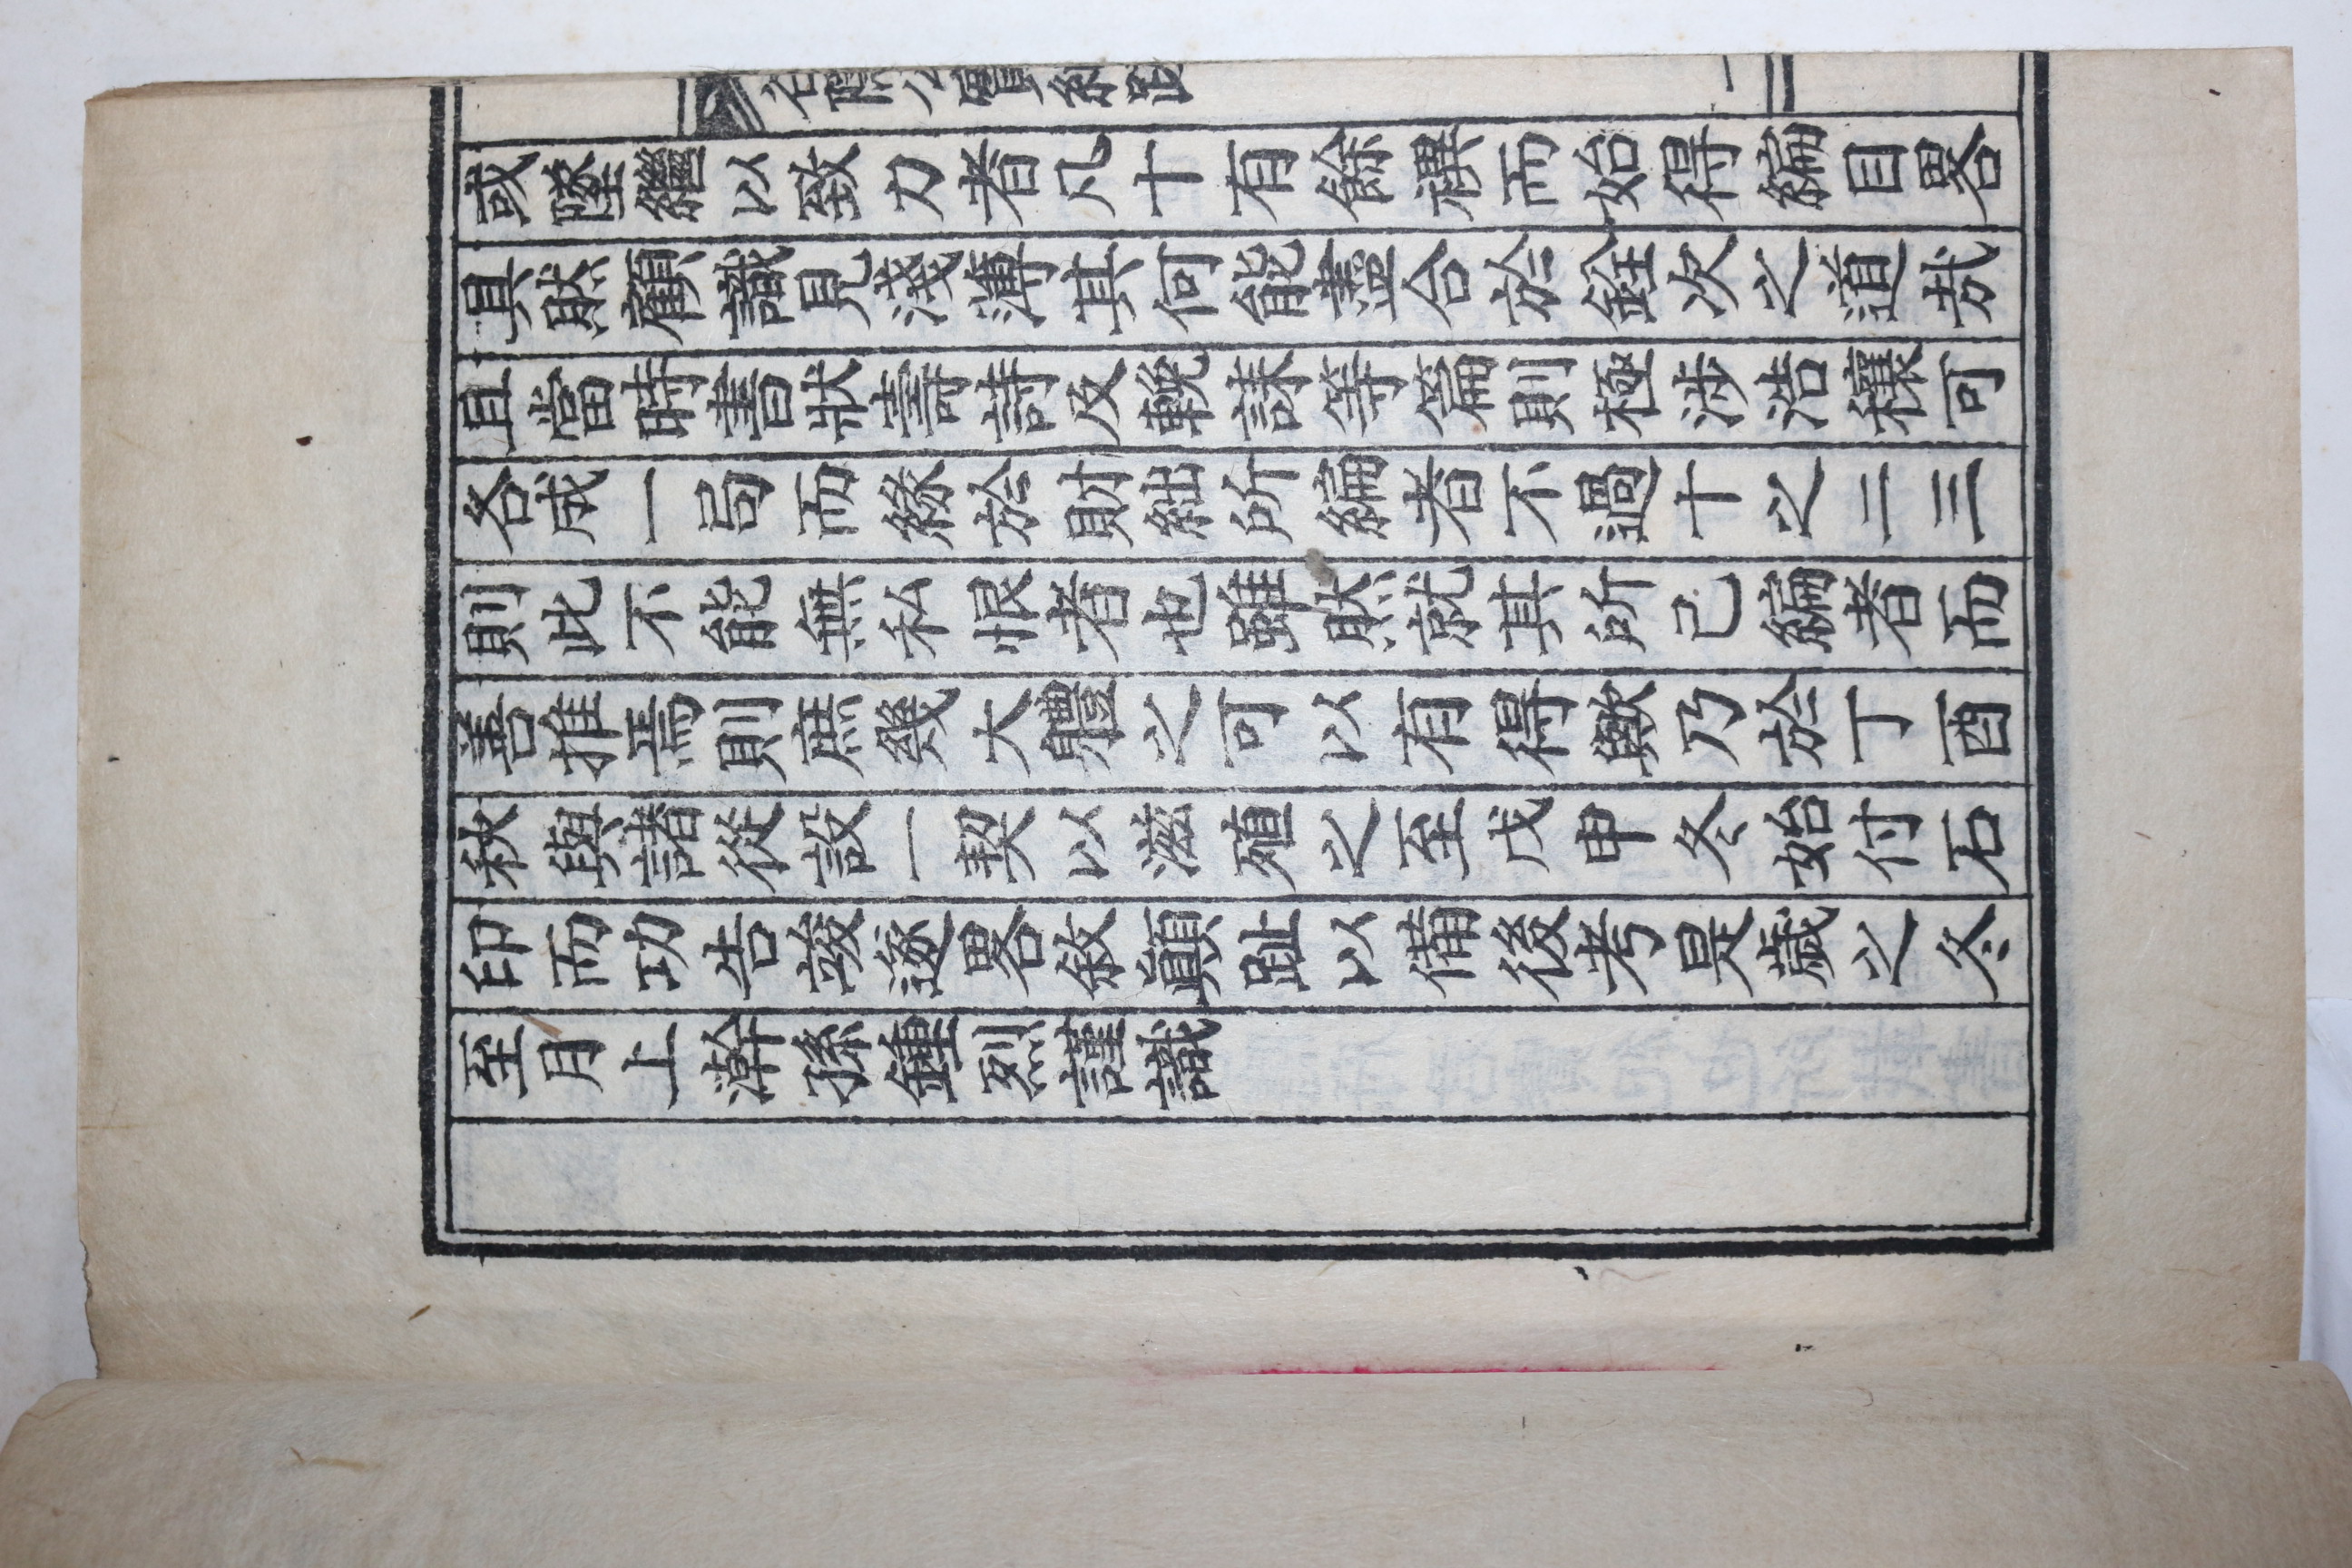 或墜繼以致力者凡十有餘禩而始得編目畧
具然顧識見淺薄其何能盡合於銓次之道哉
且當時書狀壽詩及輓誄等篇則極涉浩穰可
各成一弓而緣於財絀所編者不過十之二三
則此不能無私恨者也雖然就其所已編者而
善推焉則庶幾大體之可以有得歟乃於丁酉
秋與諸從設一契以滋殖之至戊申冬始付石
印而功告竣遂畧敘顚趾以備後考是歲之冬
至月上澣孫鍾烈謹識
隱公實紀跋
二